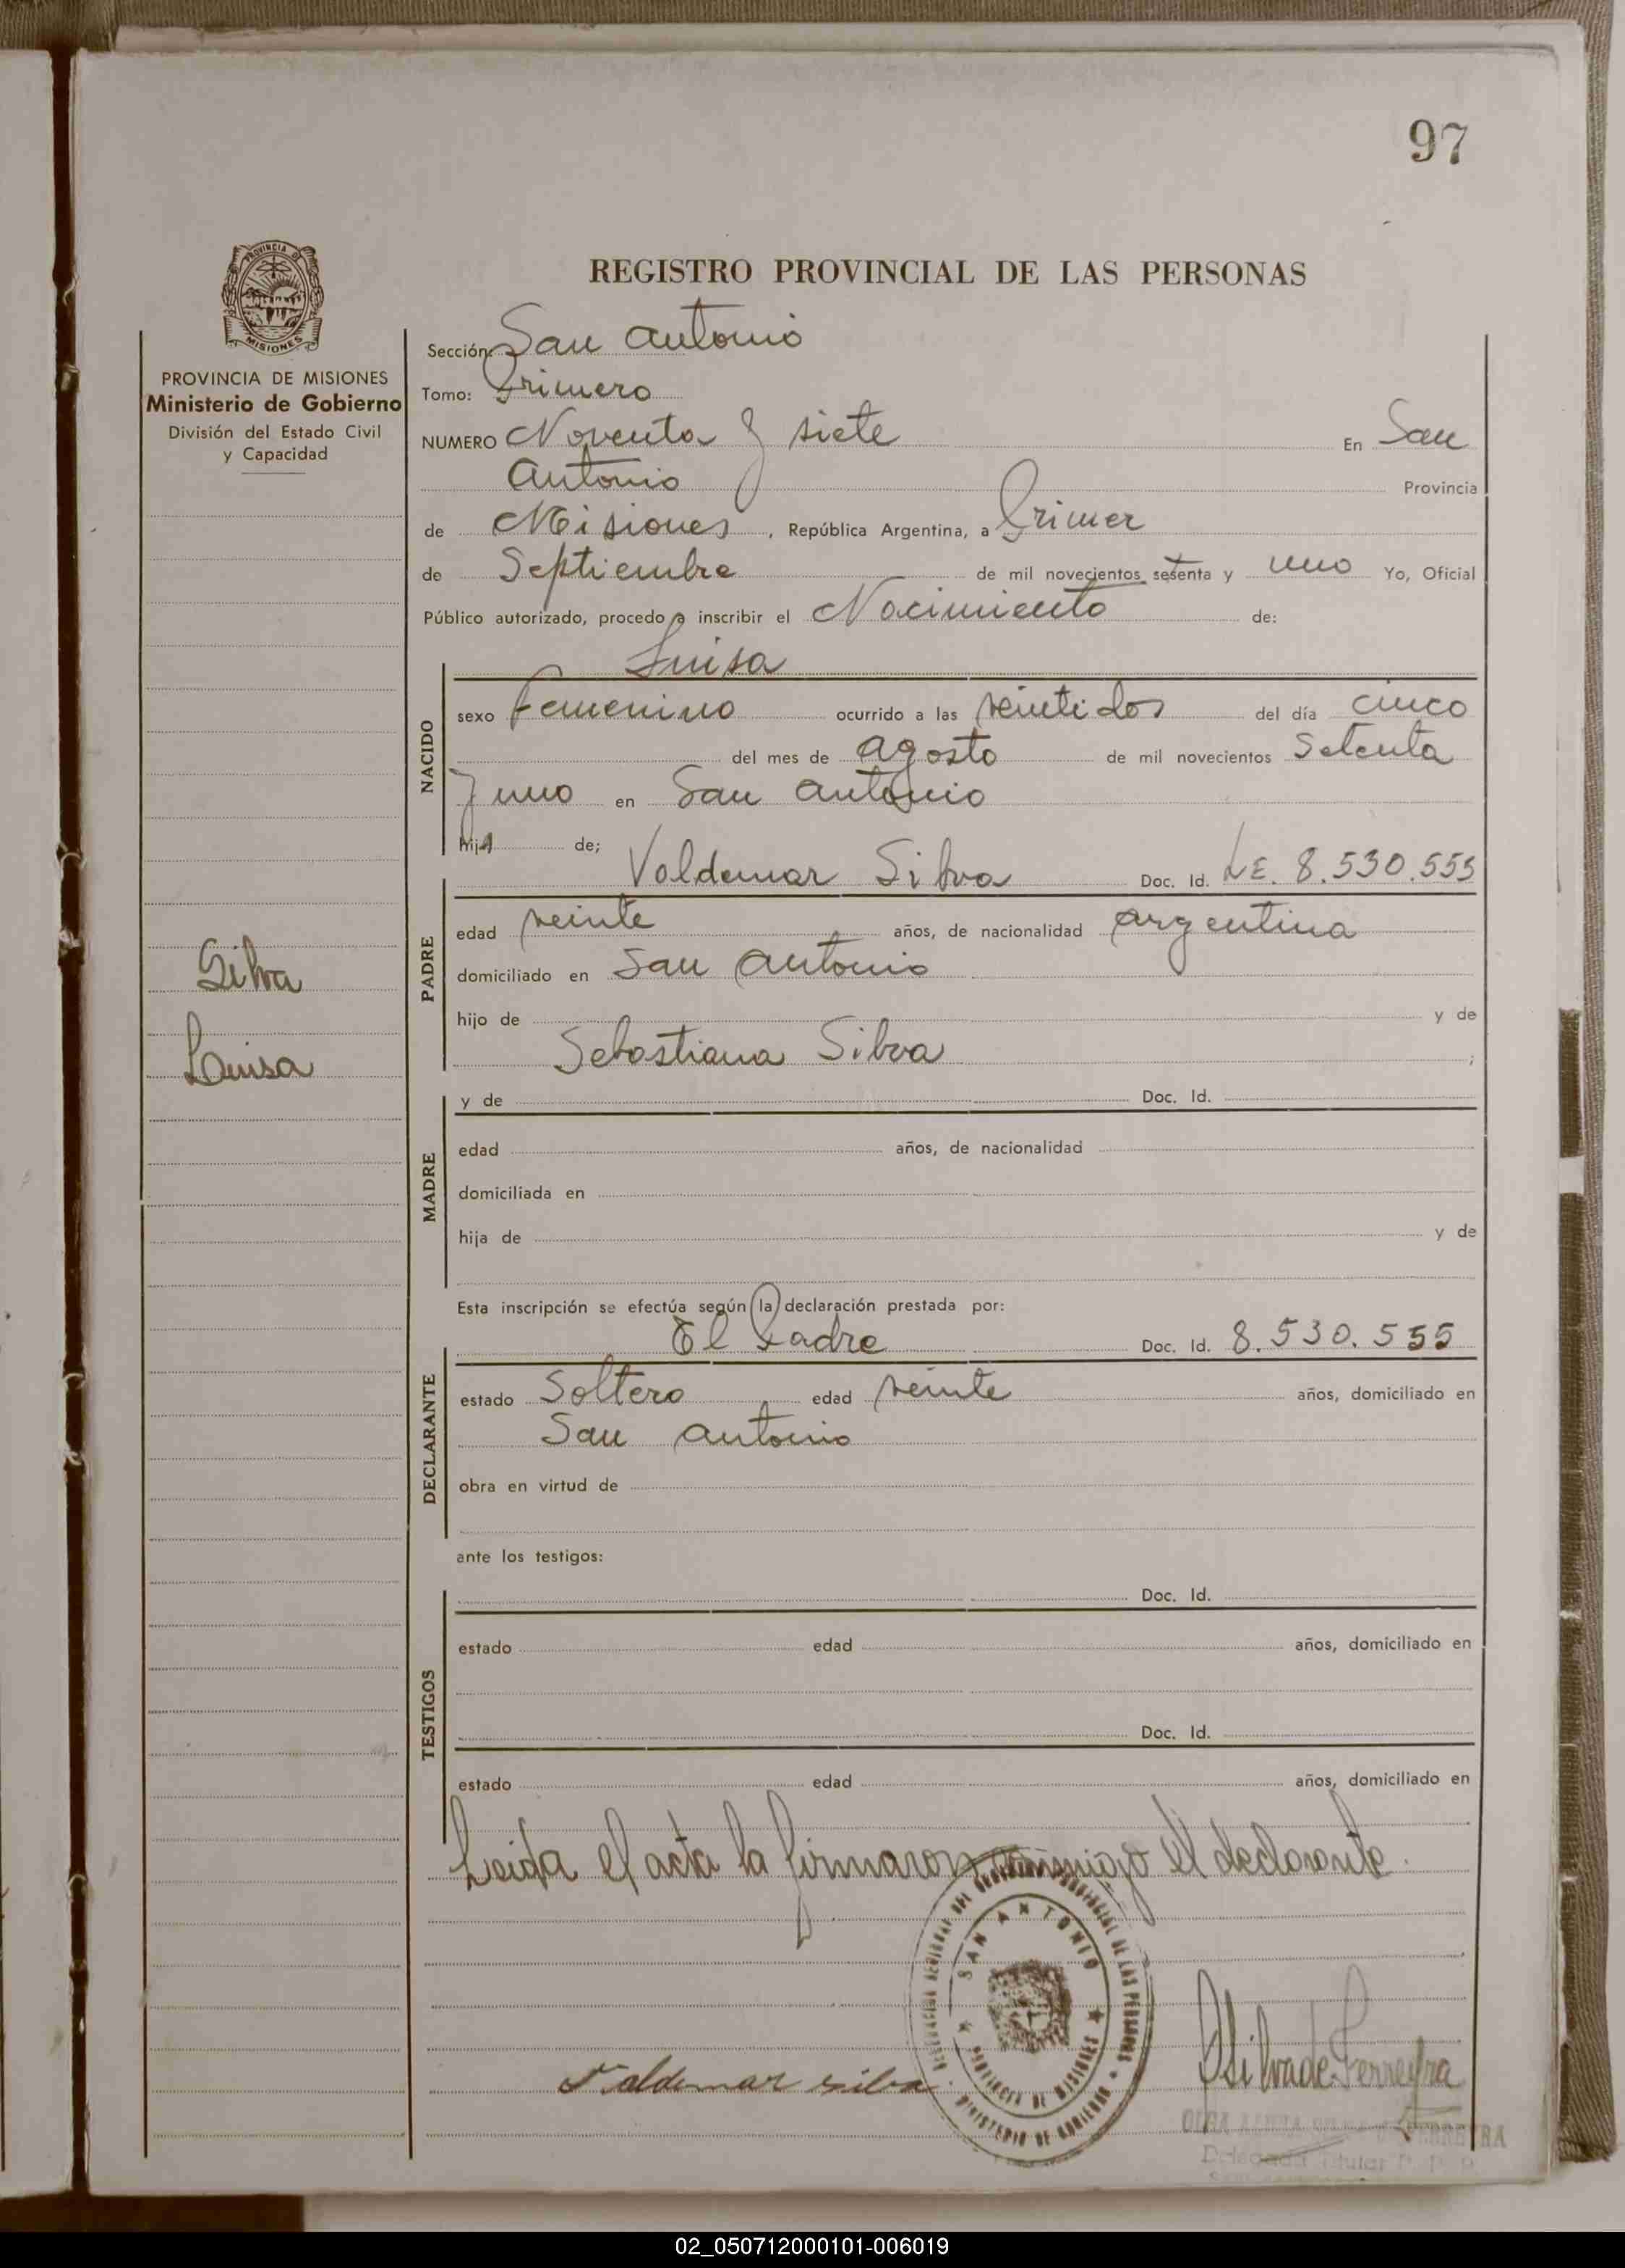 97
PROVINCIA DE
MISIONES
PROVINCIA DE MISIONES
Ministerio de Gobierno
División del Estado Civil
y Capacidad
Silva
Luisa
REGISTRO PROVINCIAL DE LAS PERSONAS
Sección: San Antonio
Tomo: Primero
NUMERO Noventa y siete En San
Antonio Provincia
de Misiones, República Argentina, a Primer
de Septiembre de mil novecientos setenta y uno Yo, Oficial
Público autorizado, procedo a inscribir el Nacimiento de:
Luisa
NACIDO
sexo Femenino ocurrido a las veintidos del día cinco
del mes de agosto de mil novecientos Setenta
y uno en San Antonio
hija de;
Valdemar Silva Doc. Id. LE. 8.530.555
PADRE
edad veinte años, de nacionalidad argentina
domiciliado en San Antonio
hijo de y de
Sebastiana Silva ;
MADRE
y de Doc. Id.
edad años, de nacionalidad
domiciliada en
hija de y de
Esta inscripción se efectúa según la declaración prestada por:
El Padre Doc. Id. 8.530.555
DECLARANTE
estado Soltero edad veinte años, domiciliado en
San Antonio
obra en virtud de
ante los testigos:
Doc. Id.
TESTIGOS
estado edad años, domiciliado en
Doc. Id.
estado edad años, domiciliado en
Leida el acta la firmaron conmigo el declarante.
SAN ANTONIO
PROVINCIA DE MISIONES
MINISTERIO DE GOBIERNO
Valdemar silva
Silva de Ferreyra
FERREYRA
02_050712000101-006019